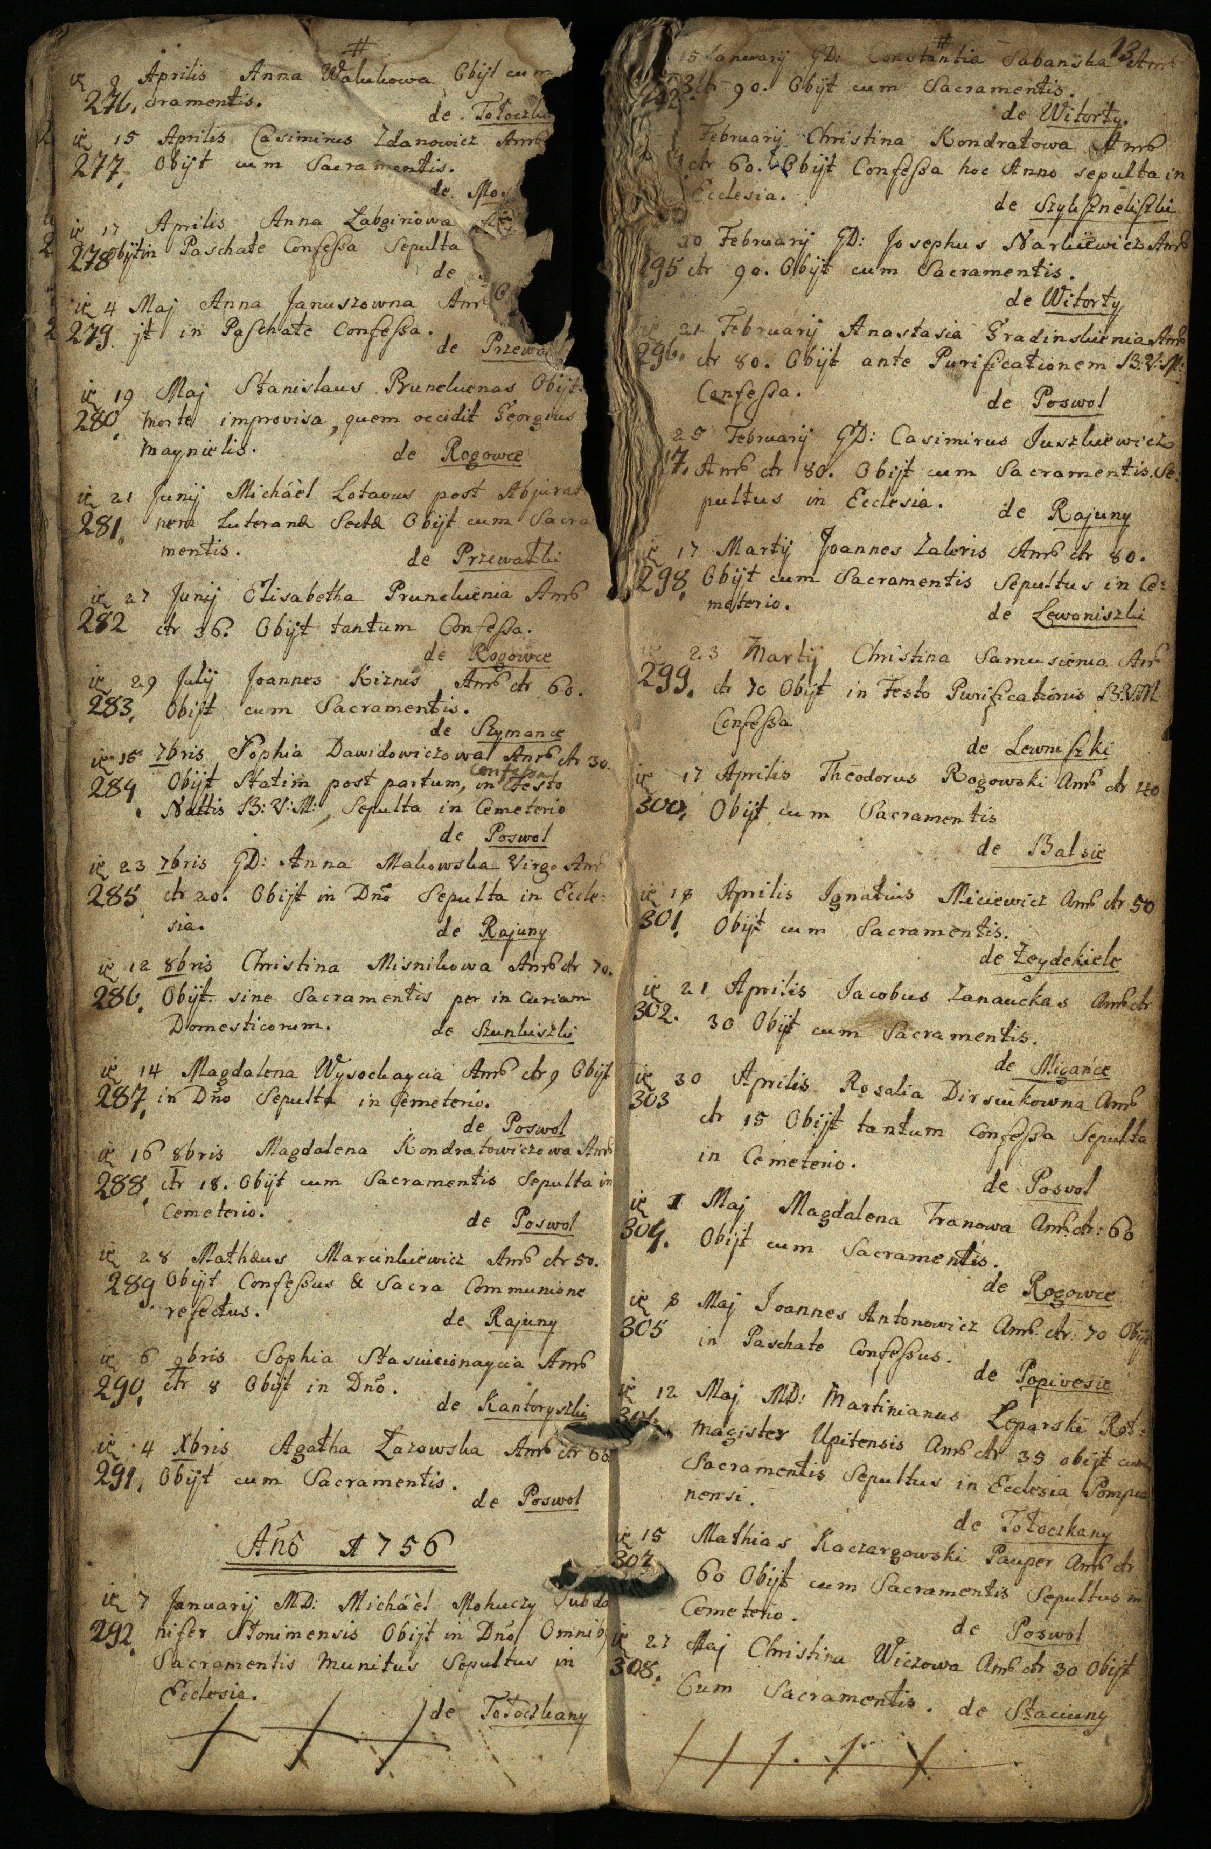 #
ie 2 Aprilis Anna Walukowa Obijt cum
276. cramentis.
de Totoczka
ie 15 Aprilis Casimirus Zdanowicz Anõ
277. Obijt cum Sacramentis.
de
ie 17 Aprilis Anna Labginowa
278 Obijt in Paschate Confessa Sepulta
de
ie 4 Maj Anna Januszowna Anõ
279. jt in Paschate Confessa.
de Przewa
ie 19 Maj Stanislaus Prunckienas Obijt
280. morte improvisa, quem occidit Georgius
Maynielis.
de Rogowce
ie 21 Junij Michäel Lotavus post Abjura
281. nem Luteranæ Sectæ Obijt cum Sacra
mentis.
de Przewałki
ie 27 Junij Elisabetha Prunckienia Anõ
282 ctr 36. Obijt tantum Confessa.
de Rogowce
ie 29 Julij Joannes Kiznis Anõ ctr 60.
283. Obijt cum Sacramentis.
de Szymance
ie 15 7bris Sophia Dawidowiczowa Anõ ctr 30
284 Obijt Statim post partum, Confessa in Festo
Nattis B: V: M: Sepulta in Cemeterio
de Poswol
ie 23 7bris GD: Anna Makowska Virgo Anõ
285 ctr 20. Obijt in Dño Sepulta in Eccle:
sia.
de Rajuny
ie 12 8bris Christina Misnikowa Anõ ctr 70.
286. Obijt sine Sacramentis per incuriam
Domesticorum.
de Szunkiszki
ie 14 Magdalena Wysockaycia Anõ ctr 9 Obijt
287. in Dño Sepulta in Cemeterio.
de Poswol
ie 16 8bris Magdalena Kondratowiczowa Anõ
288. ctr 18. Obijt cum Sacramentis Sepulta in
Cemeterio.
de Poswol
ie 28 Mathæus Marcinkiewicz Anõ ctr 50.
289 Obijt Confessus & Sacra Communione
refectus.
de Rajuny
ie 6 9bris Sophia Anõ
290. ctr 8 Obijt in Dño.
de Kantoryszki
ie 4 Xbris Agatha Lazowska Anõ ctr 60
291. Obijt cum Sacramentis.
de Poswol
Anõ 1756
ie 7 Januarij MD: Michäel Mohuczy Subda
292. nifer Słonimensis Obijt in Dño Omnib
Sacramentis Munitus Sepultus in
Ecclesia.
de Totoczkany
# 13
15 Januarij GD: Constantia Sabanska Anõ
ctr 90. Obijt cum Sacramentis.
de Witorty.
Februarij Christina Kondratowa Anõ
ctr 60. Obijt Confessa hoc Anno sepulta in
Ecclesia.
de Szyliszneliszki
10 Februarij GD: Josephus Narkiewicz Anõ
295 ctr 90. Obijt cum Sacramentis.
de Witorty
ie 21 Februarij Anastasia Gradinskienia Anõ
296. ctr 80. Obijt ante Purificationem B: V: M:
Confessa.
de Poswol
25 Februarij GD: Casimirus Juszkiewicz
Anõ ctr 80. Obijt cum Sacramentis. Se:
pultus in Ecclesia.
de Rajuny
ie 17 Martij Joannes Zaloris Anõ ctr 80.
298. Obijt cum Sacramentis Sepultus in Ce:
meterio.
de Lewaniszki
23 Martij Christina Samusienia Anõ
299. ctr 70 Obijt in Festo Purificationis B:V:M
Confessa
de Lewniszki
ie 17 Aprilis Theodorus Rogowski Anõ ctr 40
300. Obijt cum Sacramentis
de Balsie
ie 18 Aprilis Ignatius Miciewicz Anõ ctr 50
301. Obijt cum Sacramentis.
de Zeydekiele
ie 21 Aprilis Jacobus Zanauckas Anõ ctr
302. 30 Obijt cum Sacramentis.
de Migańce
ie 30 Aprilis Rosalia Dirsiukowna Anõ
303 ctr 15 Obijt tantum Confessa Sepulta
in Cemeterio.
de Poswol
ie 1 Maj Magdalena Franowa Anõ ctr: 60
304. Obijt cum Sacramentis.
de Rogowce
ie 8 Maj Joannes Antonowicz Anõ ctr 70 Obijt
305 in Paschate Confessus.
de Popiwesie
ie 12 Maj MD: Martinianus Leparski Rot:
306. Magister Upitensis Anõ ctr 35 obijt cum
Sacramentis Sepultus in Ecclesia Pompia
nensi.
de Totoczkany
ie 15 Mathias Kaczargowski Pauper Anõ ctr
307 60 Obijt cum Sacramentis Sepultus in
Cemeterio.
de Poswol
ie 27 Maj Christina Wiczowa Anõ ctr 30 Obijt
308. Cum Sacramentis.
de Staciuny